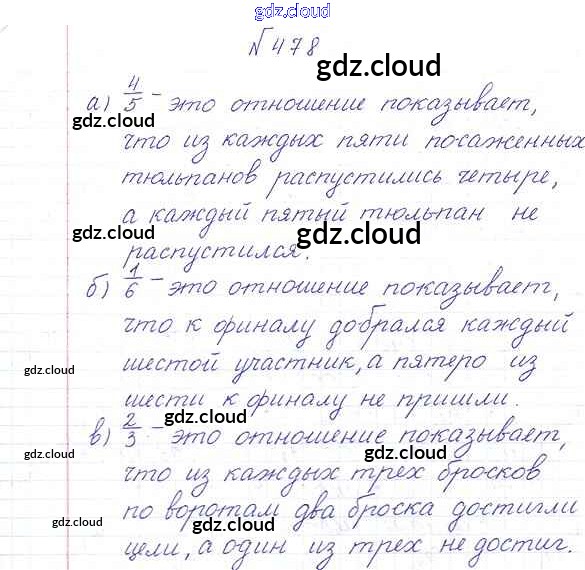 gdz.cloud
№478
gdz.cloud
а) 4/5 - это отношение показывает,
gdz.cloud
gdz.cloud
что из каждых пяти посаженных
тюльпанов распустились четыре,
а каждый пятый тюльпан не
gdz.cloud
gdz.cloud
распустился.
б) 1/6 - это отношение показывает,
что к финалу добрался каждый
шестой участник, а пятеро из
gdz.cloud
gdz.cloud
шести к финалу не пришли.
gdz.cloud
в) 2/3 - это отношение показывает,
gdz.cloud
gdz.cloud
что из каждых трех бросков
по воротам два броска достигли
gdz.cloud
gdz.cloud
цели, а один из трех не достиг.